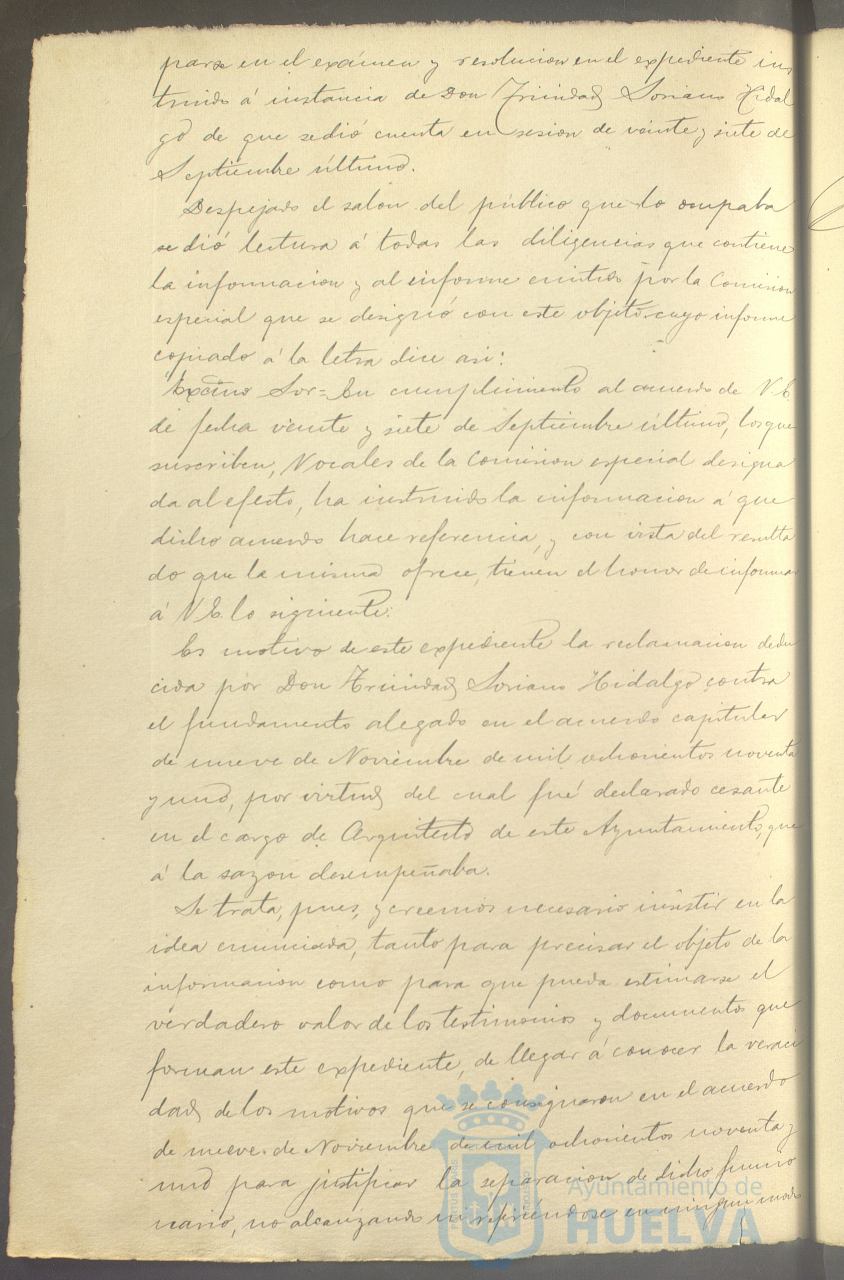 parse en el exámen y resolucion en el expediente ins
truido á instancia de Don Trinidad Soriano Hidal
go de que se dió cuenta en sesion de veinte y siete de
Septiembre último.
Despejado el salon del público que lo ocupaba
se dió lectura á todas las diligencias que contiene
la informacion y al informe emitido por la Comision
especial que se designó con este objeto cuyo informe
copiado á la letra dice asi:
Excmo Sor= En cumplimiento al acuerdo de V.E.
de fecha veinte y siete de Septiembre último, los que
suscriben, Vocales de la Comision especial designa
da al efecto, ha instruido la informacion á que
dicho acuerdo hace referencia, y con vista del resulta
do que la misma ofrece, tienen el honor de informar
á V.E. lo siguiente:
Es motivo de este expediente la reclamacion dedu
cida por Don Trinidad Soriano Hidalgo contra
el fundamento alegado en el acuerdo capitular
de nueve de Noviembre de mil ochocientos noventa
y uno, por virtud del cual fué declarado cesante
en el cargo de Arquitecto de este Ayuntamiento, que
á la sazon desempeñaba.
Se trata, pues, y creemos necesario insistir en la
idea enunciada, tanto para precisar el objeto de la
informacion como para que pueda estimarse el
verdadero valor de los testimonios y documentos que
forman este expediente, de llegar á conocer la veraci
dad de los motivos que se consignaron en el acuerdo
de nueve de Noviembre de mil ochocientos noventa y
uno para justificar la separacion de dicho funcio
nario, no alcanzando ni refiriéndose en ningun modo
Ayuntamiento de
HUELVA